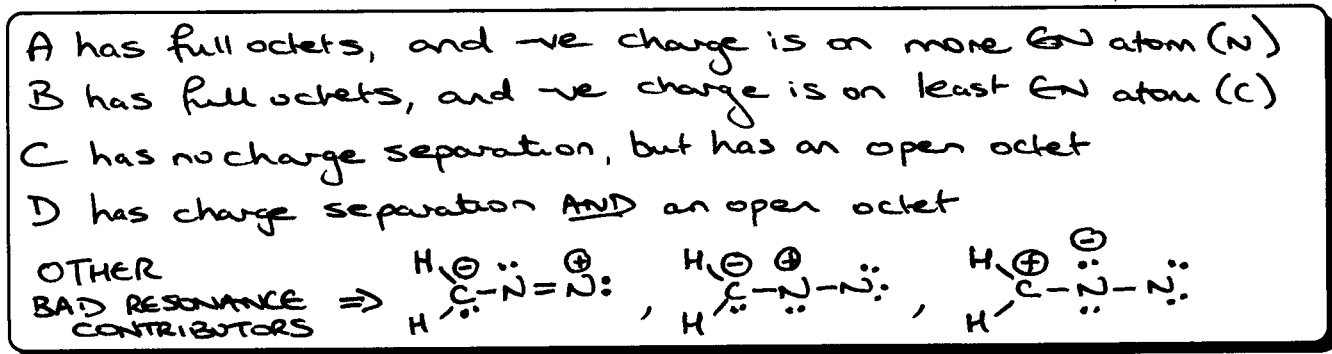 A has full octets, and -ve charge is on more EN atom (N)
B has full octets, and -ve charge is on least EN atom (C)
C has no charge separation, but has an open octet
D has charge separation AND an open octet
OTHER
BAD RESONANCE ⇒
CONTRIBUTORS
H ⊖ ⊕
C-N=N: ,
H
H ⊖ ⊕
C-N-N: ,
H
H ⊕ ⊖
C-N-N:
H